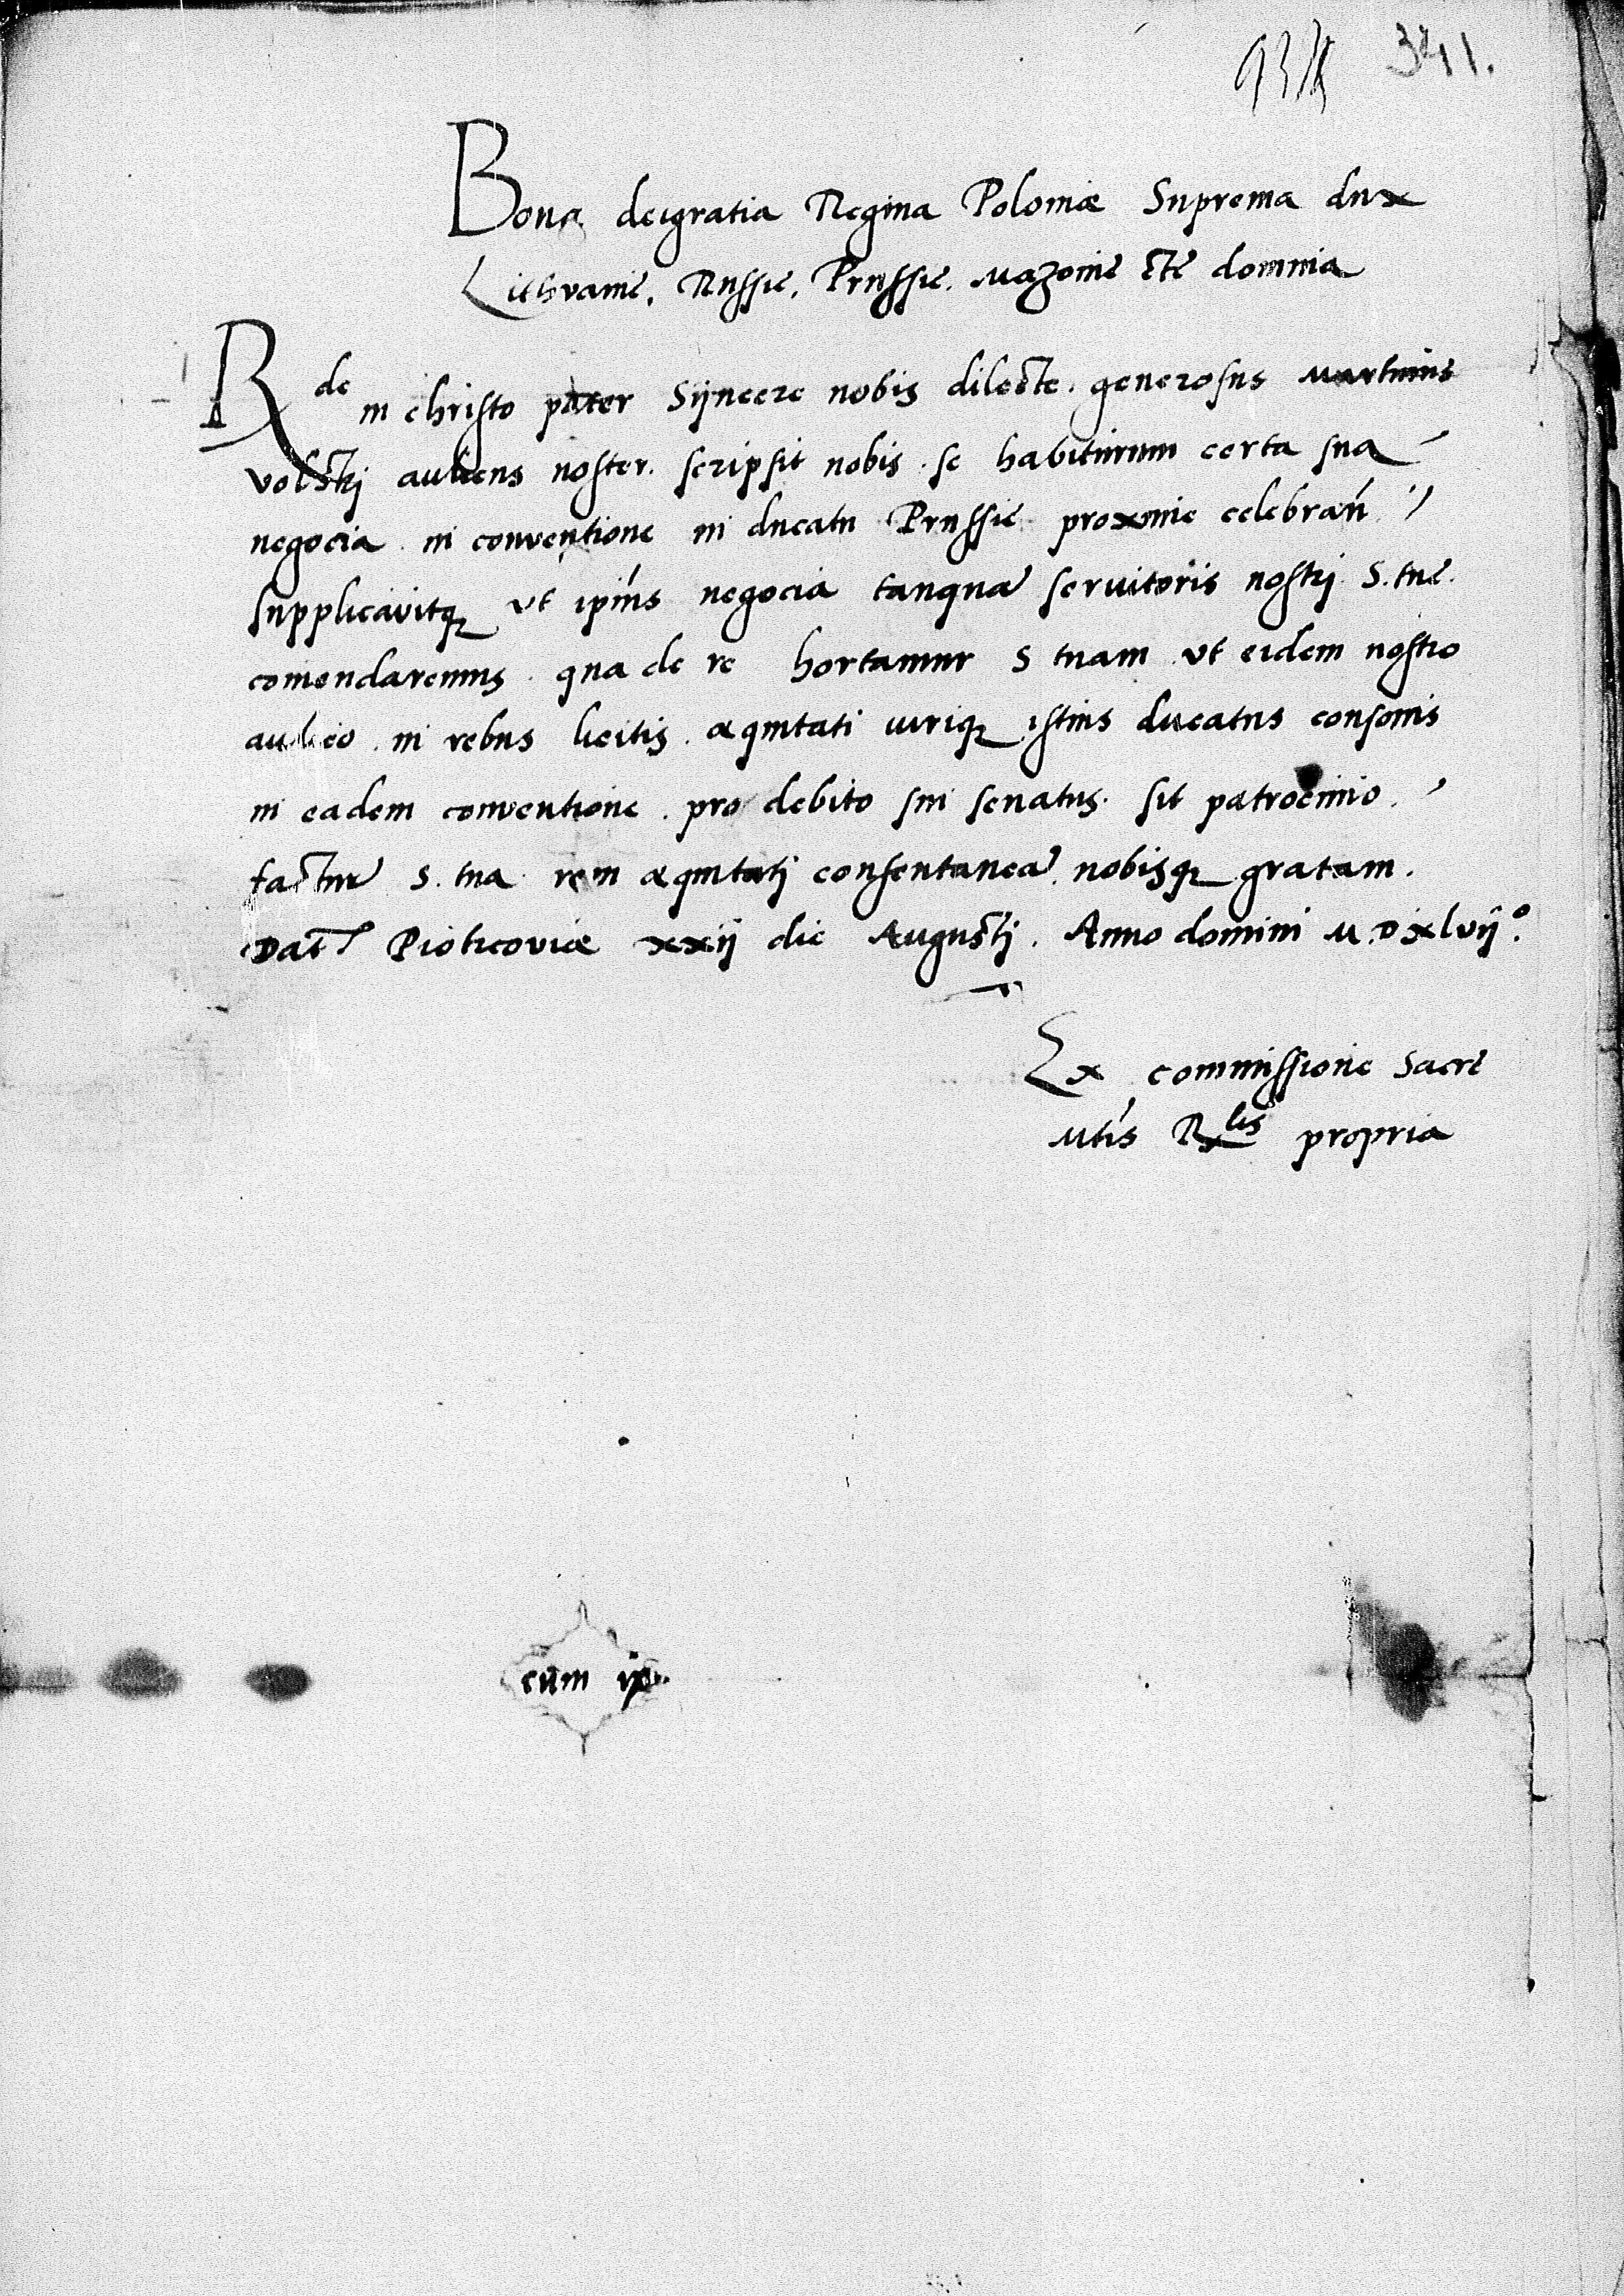 341.
Bona deigratia Regina Poloniæ Suprema dux
Lithvanię. Russię. Prussię. Mazouię etc̃ domina
Rde in christo pater Sijncere nobis dilecte. generosus Martinus
Volskj aulicus noster. scripsit nobis. se habiturum certa sua
negocia in conuentione in ducatu Prussię proxime celebrań
supplicavitq ut ip̃ius negocia tanquã seruitoris nostrj S. tuę
com̃endaremus. qua de re hortamur S tuam ut eidem nostro
aulico in rebus licitis. æquitati iuriq istius ducatus consonis
in eadem conuentione. pro debito sui senatus. sit patrocinio.
factur̃ S. tua rem æquitatj consentaneã. nobisq gratam.
Dat̃ Piotrcoviæ xxij die Augustj. Anno domini M.D xlvij°.
Ex commissione Sacrę
Mt̃is Rlis propria
cum